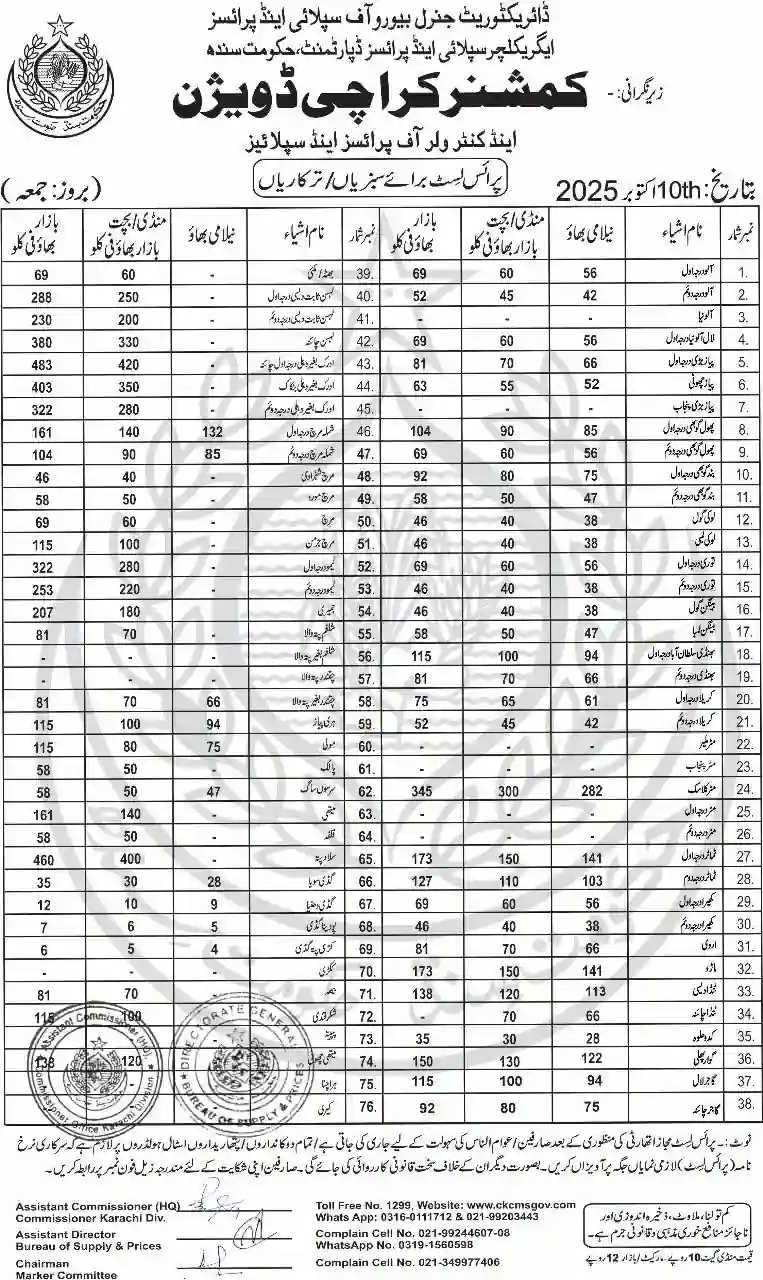 ڈائریکٹوریٹ جنرل بیورو آف سپلائی اینڈ پرائسز
ایگریکلچر سپلائی اینڈ پرائسز ڈپارٹمنٹ، حکومت سندھ
زیر نگرانی: - کمشنر کراچی ڈویژن
اینڈ کنٹرولر آف پرائسز اینڈ سپلائیز
بتاریخ: 10th اکتوبر 2025 پرائس لسٹ برائے سبزیاں/ترکاریاں (بروز: جمعہ)
نمبر شمار نام اشیاء نیلامی بھاؤ منڈی/بچت بازار بھاؤ فی کلو بازار بھاؤ فی کلو نمبر شمار نام اشیاء نیلامی بھاؤ منڈی/بچت بازار بھاؤ فی کلو بازار بھاؤ فی کلو
1. آلو درجہ اول 56 60 69 39. 60 69
2. آلو درجہ دوئم 42 45 52 40. لہسن ثابت دیسی درجہ اول - 250 288
3. آلو نیا - - - 41. لہسن ثابت دیسی درجہ دوئم - 200 230
4. لال آلو نیا درجہ اول 56 60 69 42. لہسن چائنہ - 330 380
5. پیاز بڑی درجہ اول 66 70 81 43. ادرک بغیر دھلی درجہ اول چائنہ - 420 483
6. پیاز چھوٹی 52 55 63 44. ادرک بغیر دھلی بنکاک - 350 403
7. پیاز بڑی پنجاب - - - 45. ادرک بغیر دھلی درجہ دوئم - 280 322
8. پھول گوبھی درجہ اول 85 90 104 46. شملہ مرچ درجہ اول 132 140 161
9. پھول گوبھی درجہ دوئم 56 60 69 47. شملہ مرچ درجہ دوئم 85 90 104
10. بند گوبھی درجہ اول 75 80 92 48. مرچ - 40 46
11. بند گوبھی درجہ دوئم 47 50 58 49. مرچ - 50 58
12. لوکی گول 38 40 46 50. مرچ - 60 69
13. لوکی لمبی 38 40 46 51. مرچ - 100 115
14. توری درجہ اول 56 60 69 52. لیمو درجہ اول - 280 322
15. توری درجہ دوئم 38 40 46 53. لیمو درجہ دوئم - 220 253
16. بینگن گول 38 40 46 54. - 180 207
17. بینگن لمبا 47 50 58 55. شلغم پتہ والا - 70 81
18. بھنڈی سلطان آباد درجہ اول 94 100 115 56. شلغم بغیر پتہ والا - - -
19. بھنڈی درجہ دوئم 66 70 81 57. چقندر پتہ والا - - -
20. کریلا درجہ اول 61 65 75 58. چقندر بغیر پتہ والا 66 70 81
21. کریلا درجہ دوئم 42 45 52 59. ہری پیاز 94 100 115
22. مٹر ملیر - - - 60. مولی 75 80 115
23. مٹر پنجاب - - - 61. پالک - 50 58
24. مٹر کلاسک 282 300 345 62. سرسوں ساگ 47 50 58
25. مٹر درجہ اول - - - 63. میتھی - 140 161
26. مٹر درجہ دوئم - - - 64. قلفہ - 50 58
27. ٹماٹر درجہ اول 141 150 173 65. سلاد پتہ - 400 460
28. ٹماٹر درجہ دوم 103 110 127 66. گڈی سویا 28 30 35
29. کھیرا درجہ اول 56 60 69 67. گڈی دھنیا 9 10 12
30. کھیرا درجہ دوئم 38 40 46 68. پودینا گڈی 5 6 7
31. اروی 66 70 81 69. کڑی پتہ گڈی 4 5 6
32. 141 150 173 70. ککڑی - - -
33. ٹنڈا دیسی 113 120 138 71. - 70 81
34. ٹنڈا چائنہ 66 70 - 72. شکرقندی 100 115
35. کدو حلوہ 28 30 35 73.
36. گوار پھلی 122 130 150 74. میتھی چھوٹی 120 138
37. گاجر لال 94 100 115 75. ہرا چنا
38. گاجر چائنہ 75 80 92 76. کیری
Assistant Commissioner (HQ)
Commissioner Office Karachi Division
DIRECTORATE GENERAL
BUREAU OF SUPPLY & PRICES
نوٹ:- پرائس لسٹ مجاز اتھارٹی کی منظوری کے بعد صارفین/عوام الناس کی سہولت کے لیے جاری کی جاتی ہے/تمام دوکانداروں/پتھاریداروں/اسٹال ہولڈروں پر لازم ہے کہ سرکاری نرخ
نامہ (پرائس لسٹ) لازمی نمایاں جگہ پر آویزاں کریں۔ بصورت دیگر ان کے خلاف سخت قانونی کارروائی کی جائے گی۔ صارفین اپنی شکایت کے لئے مندرجہ زیل فون نمبر پر رابطہ کریں۔
Assistant Commissioner (HQ)
Commissioner Karachi Div.
Assistant Director
Bureau of Supply & Prices
Chairman
Marker Committee
Toll Free No. 1299, Website: www.ckcmsgov.com
Whats App: 0316-0111712 & 021-99203443
Complain Cell No. 021-99244607-08
WhatsApp No. 0319-1560598
Complain Cell No. 021-349977406
کم تولنا، ملاوٹ، ذخیرہ اندوزی اور
ناجائز منافع خوری مذہبی و قانونی جرم ہے۔
قیمت منڈی گیٹ 10 روپے ۔ مارکیٹ/بازار 12 روپے